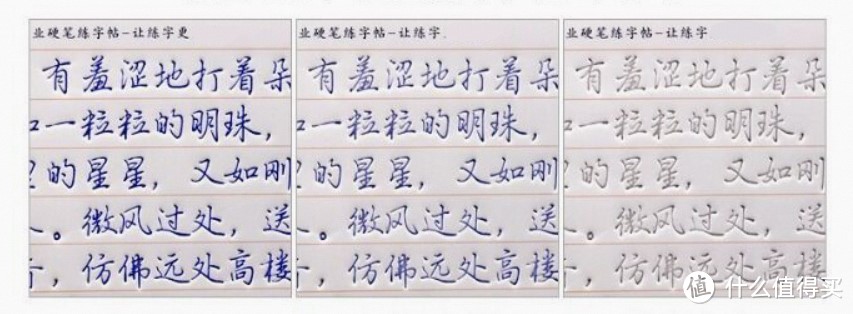 业硬笔练字帖-让练字更
有羞涩地打着朵
一粒粒的明珠，
的星星，又如刚
。微风过处，送
，仿佛远处高楼
业硬笔练字帖-让练字
有羞涩地打着朵
一粒粒的明珠，
的星星，又如刚
。微风过处，送
，仿佛远处高楼
业硬笔练字帖-让练字
有羞涩地打着朵
一粒粒的明珠，
的星星，又如刚
。微风过处，送
，仿佛远处高楼
值 什么值得买